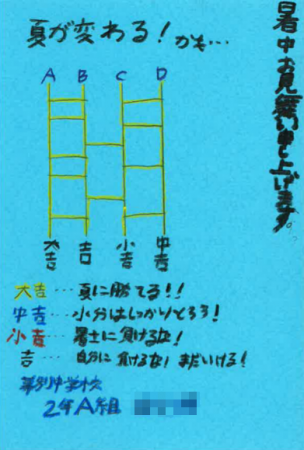 暑中お見舞い申し上げます。
夏が変わる！かも…
A B C D
大吉 吉 小吉 中吉
大吉…夏に勝てる！！
中吉…水分はしっかりとろう！
小吉…暑さに負けるな！
吉…自分に負けるな！まだいける！
2年A組